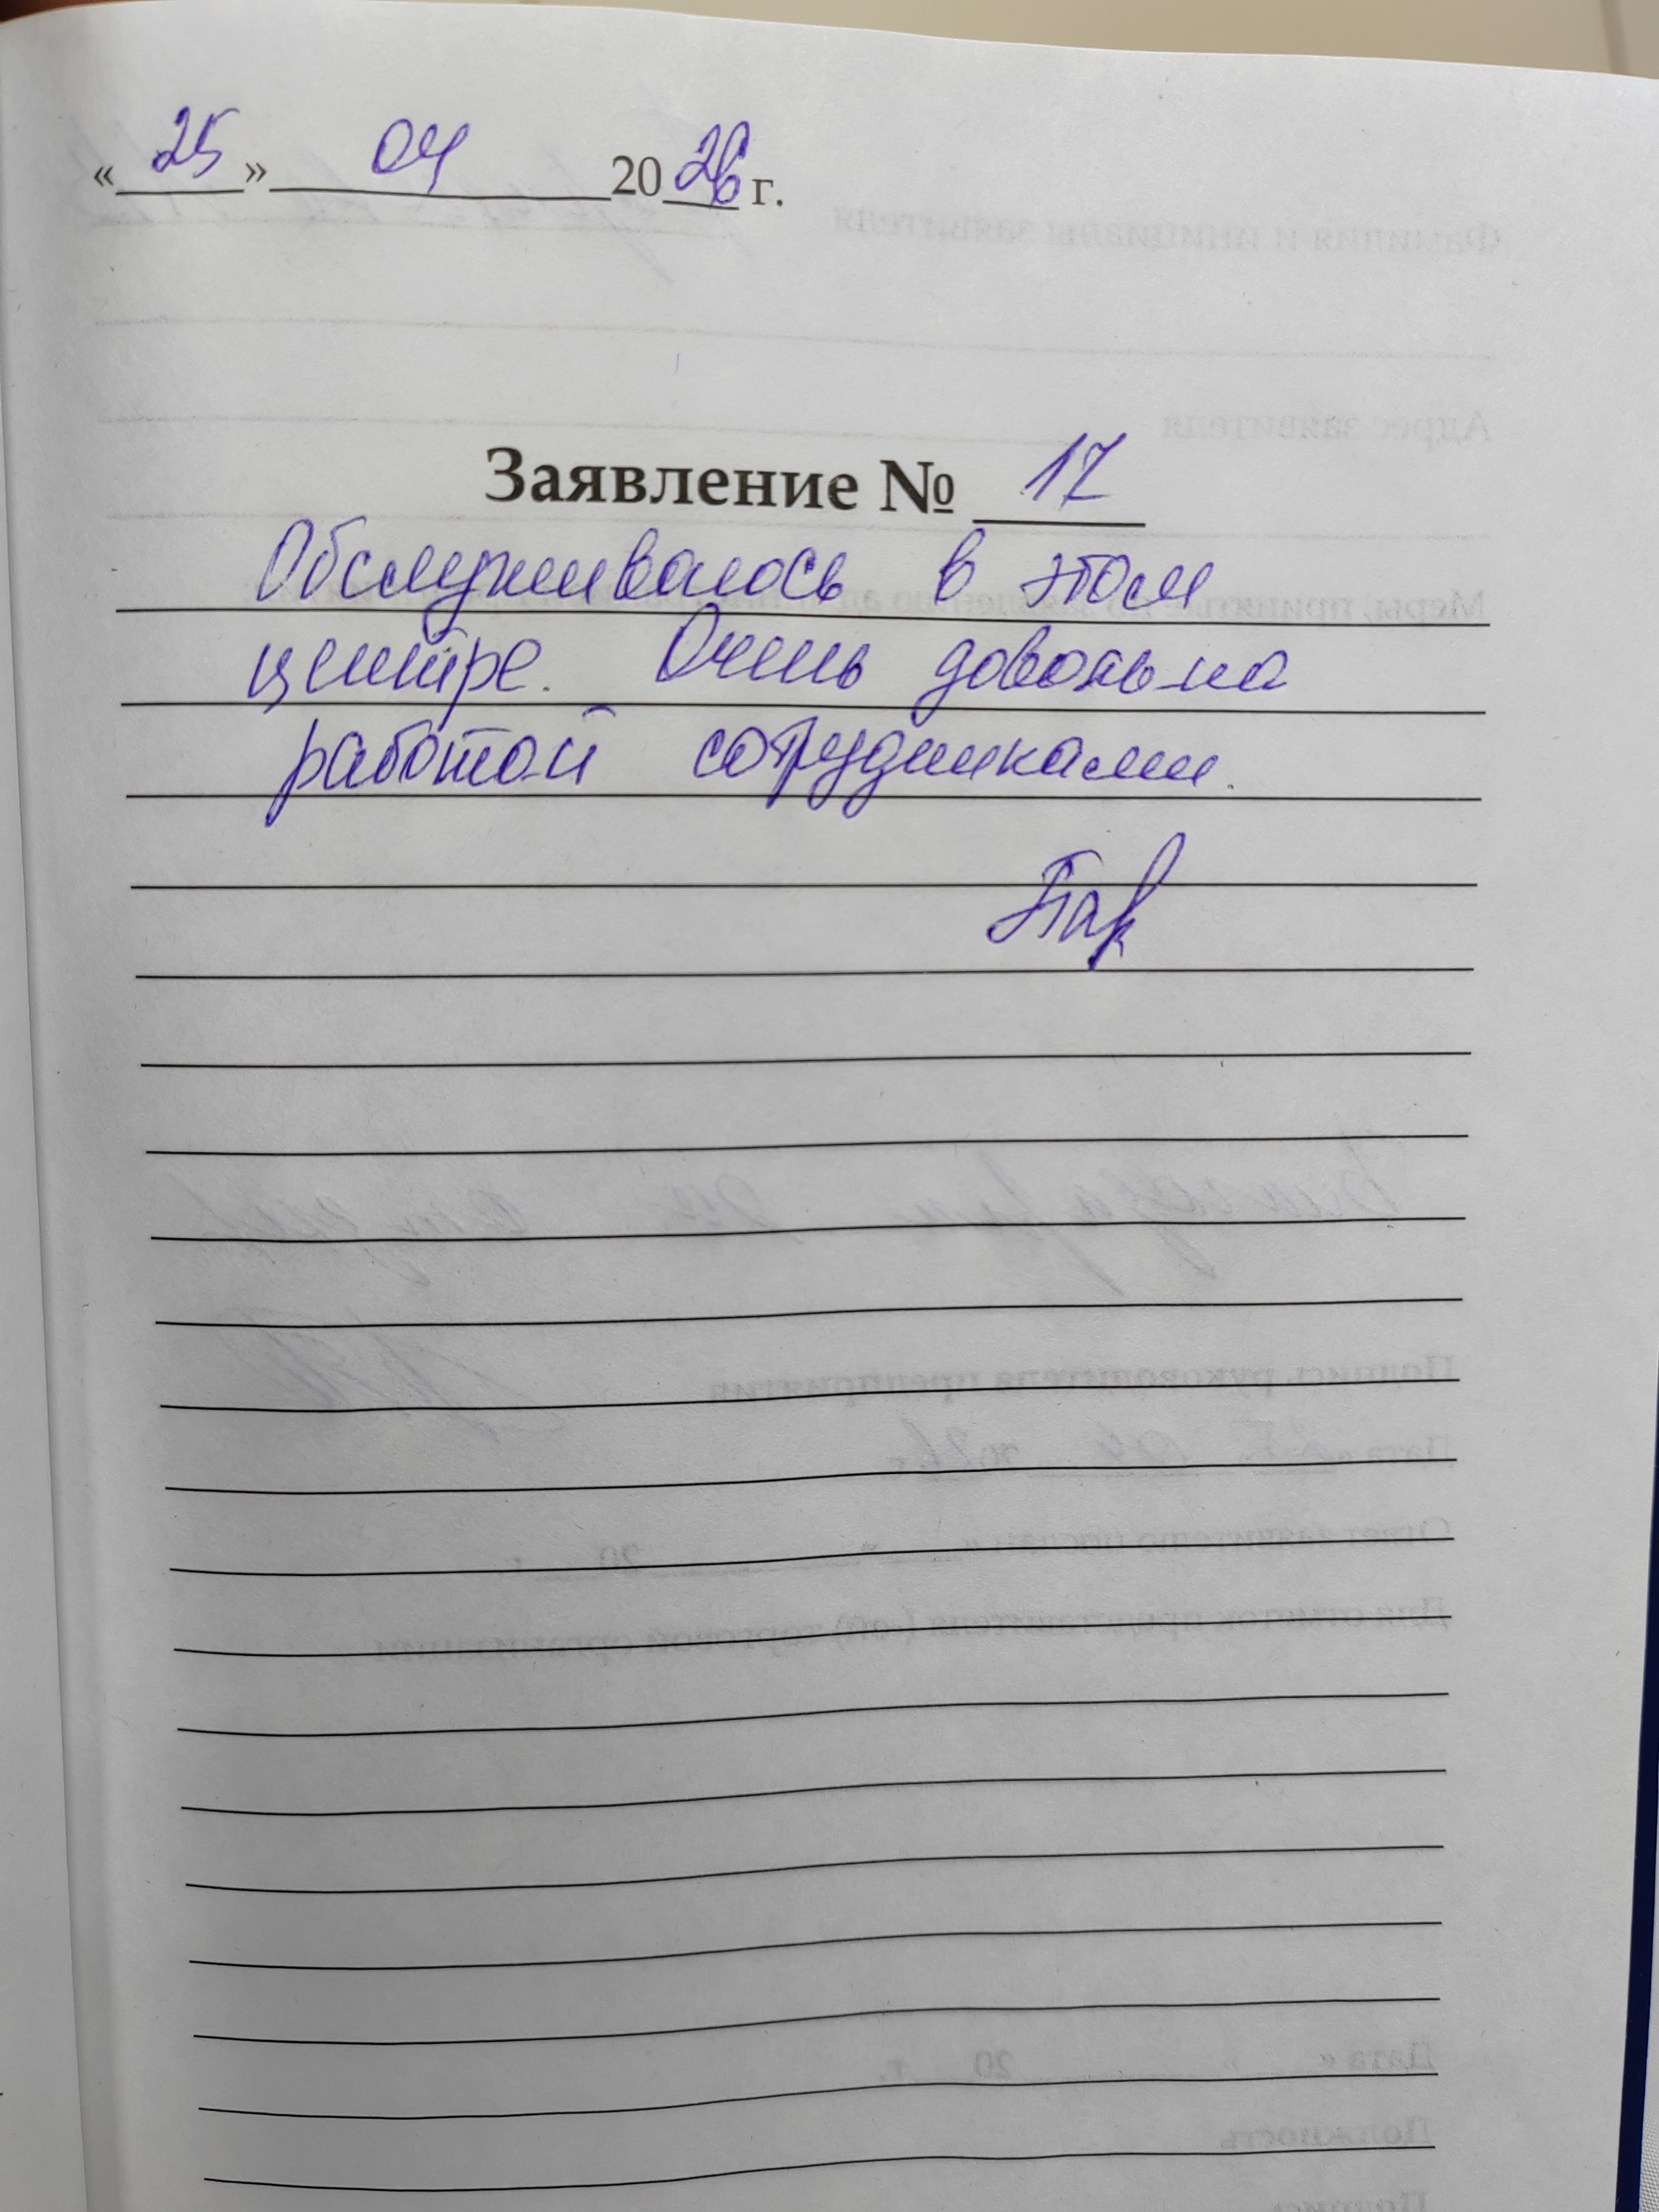 « 25 » 04 2026 г.
Заявление № 17
Обслуживаюсь в этом
центре. Очень довольна
работой сотрудниками.